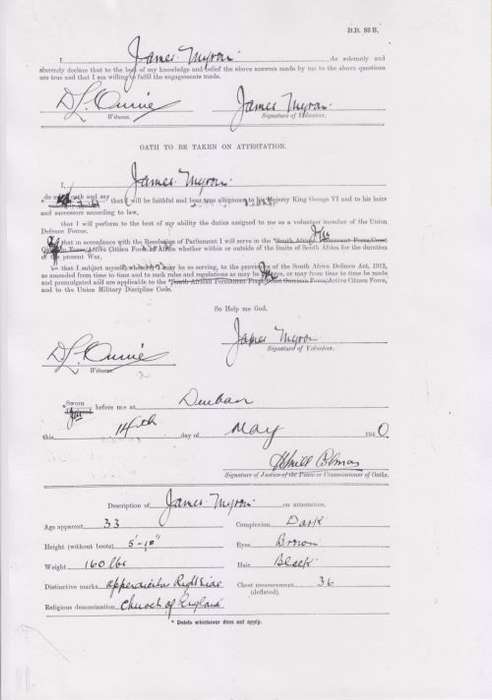 D.D. 93 B.
I, James Myron do solemnly and
sincerely declare that to the best of my knowledge and belief the above answers made by me to the above questions
are true and that I am willing to fulfil the engagements made.
James Myron
Witness.
Signature of Volunteer.
OATH TO BE TAKEN ON ATTESTATION.
I, James Myron
do that I will be faithful and bear true allegiance to His Majesty King George VI and to his heirs
and successors according to law,
that I will perform to the best of my ability the duties assigned to me as a volunteer member of the Union
Defence Forces,
that in accordance with the Resolution of Parliament I will serve in the South African
Active Citizen Force whether within or outside of the limits of South Africa for the duration
of the present War,
that I subject myself, wherever I may be so serving, to the provisions of the South Africa Defence Act, 1912,
as amended from time to time and to such rules and regulations as may be or may from time to time be made
and promulgated and are applicable to the South African Permanent Force Active Citizen Force,
and to the Union Military Discipline Code.
So Help me God.
James Myron
Signature of Volunteer.
Witness
Sworn before me at Durban
this 14th day of May 1940
Signature of Justice of the Peace or Commissioner of Oaths.
Description of James Myron on attestation.
Age apparent 33 Complexion Dark
Height (without boots) 5'-10" Eyes Brown
Weight 160 lbs Hair Black
Distinctive marks Right Side Chest measurement 36
(deflated)
Religious denomination Church of England
* Delete whichever does not apply.